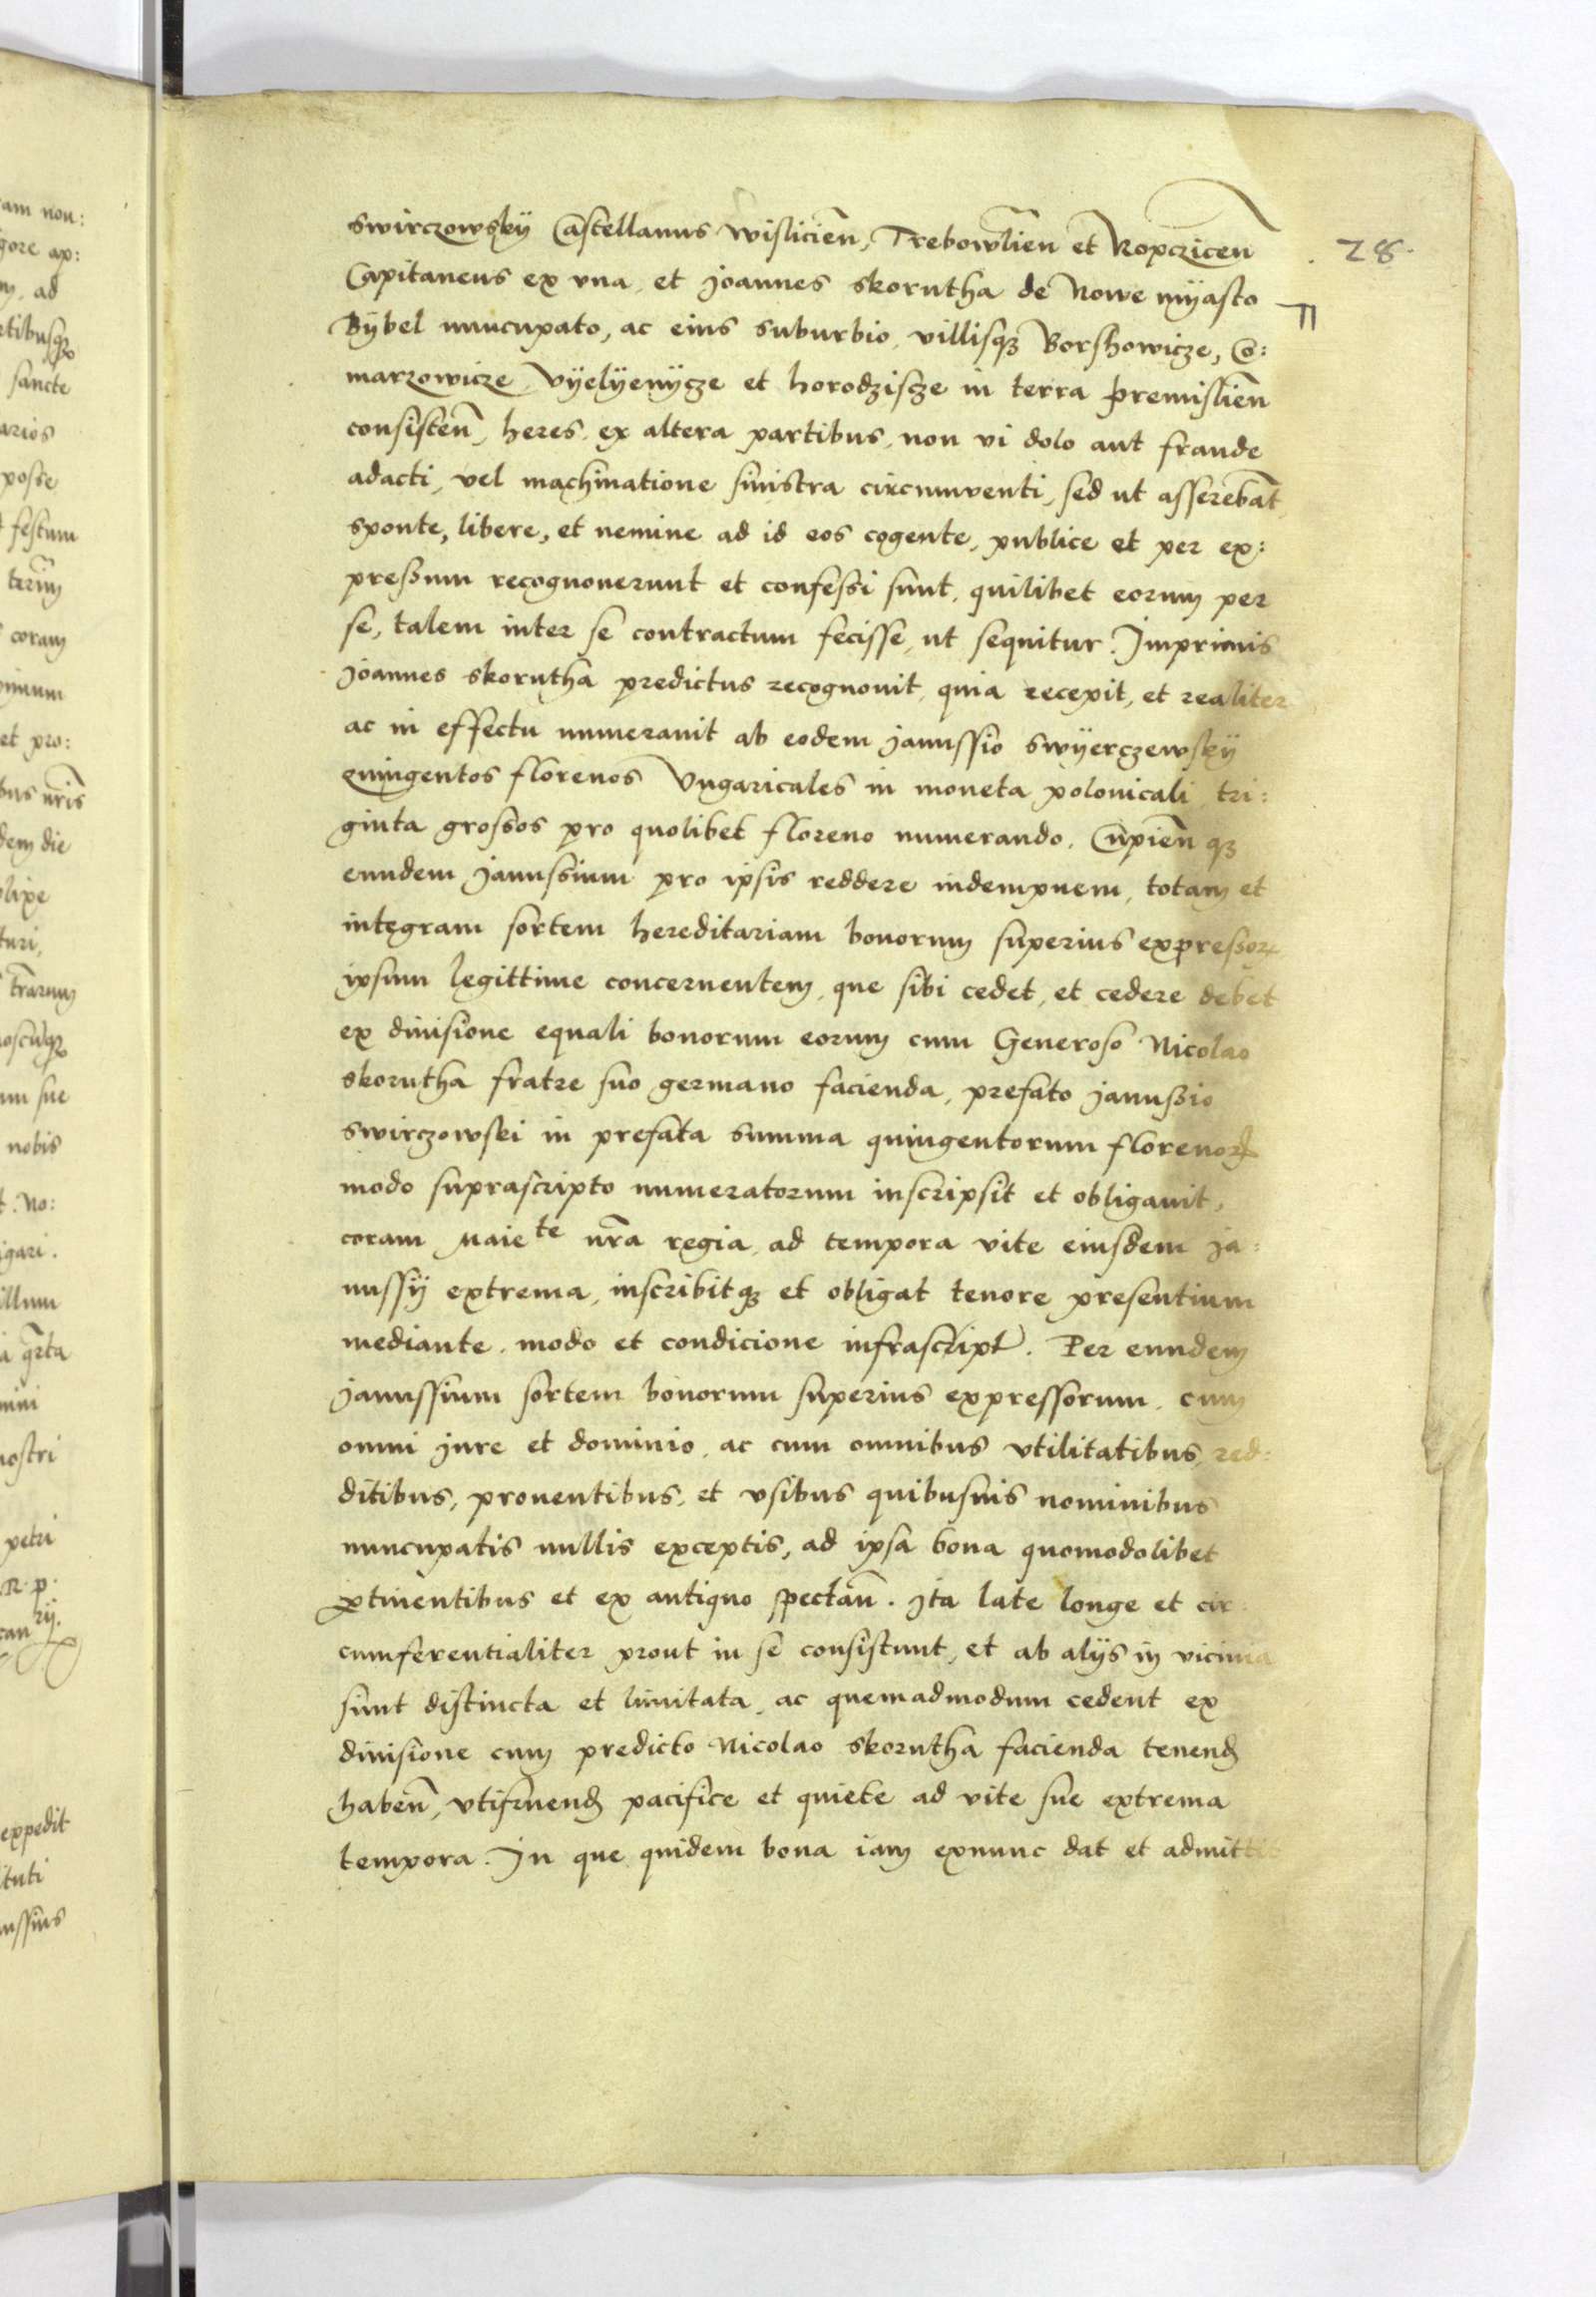 28.
swirczowskÿ Castellanus wislicień, Trebowlień et Ropcziceń
Capitaneus ex vna, et Joannes skorutha de Nowe mÿasto
Bÿbel nuncupato, ac eius suburbio, villisqȝ Borshowicze, Co:
marzowicze Vÿelÿenÿcze et horodziscze in terra premislień
consisteń, heres, ex altera partibus, non vi dolo aut fraude
adacti, vel machinatione sinistra circumventi, sed ut asserebat̄
sponte, libere, et nemine ad id eos cogente, publice et per ex:
pressum recognouerunt et confessi sunt, quilibet eorum per
se, talem inter se contractum fecisse, ut sequitur. Imprimis
Joannes skorutha predictus recognouit, quia recepit, et realiter
ac in effectu numerauit ab eodem Janussio swÿerczewskÿ
quingentos florenos Vngaricales in moneta polonicali tri:
ginta grossos pro quolibet floreno numerando. Cupień qȝ
eundem Janussium pro ipsis reddere indempnem, totam et
integram sortem hereditariam bonorum superius expressorꝝ
ipsum legittime concernentem, que sibi cedet, et cedere debet
ex diuisione equali bonorum eorum cum Generoso Nicolao
skorutha fratre suo germano facienda, prefato Janussio
swirczowski in prefata summa quingentorum florenorꝝ
modo suprascripto numeratorum inscripsit et obligauit,
coram Maiete nr̄a regia, ad tempora vite eiusdem Ja:
nussÿ extrema, inscribitqȝ et obligat tenore presentium
mediante, modo et condicione infrascript. Per eundem
Janussium sortem bonorum superius expressorum, cum
omni Jure et dominio, ac cum omnibus vtilitatibus, red:
ditibus, prouentibus, et vsibus quibusuis nominibus
nuncupatis nullis exceptis, ad ipsa bona quomodolibet
ꝑtinentibus et ex antiquo spectań. Ita late longe et cir:
cumferentialiter prout in se consistunt, et ab alÿs in vicinia
sunt distincta et limitata, ac quemadmodum cedent ex
diuisione cum predicto Nicolao skorutha facienda tenend
habeń, vtifruend pacifice et quiete ad vite sue extrema
tempora. In que quidem bona iam exnunc dat et admittit